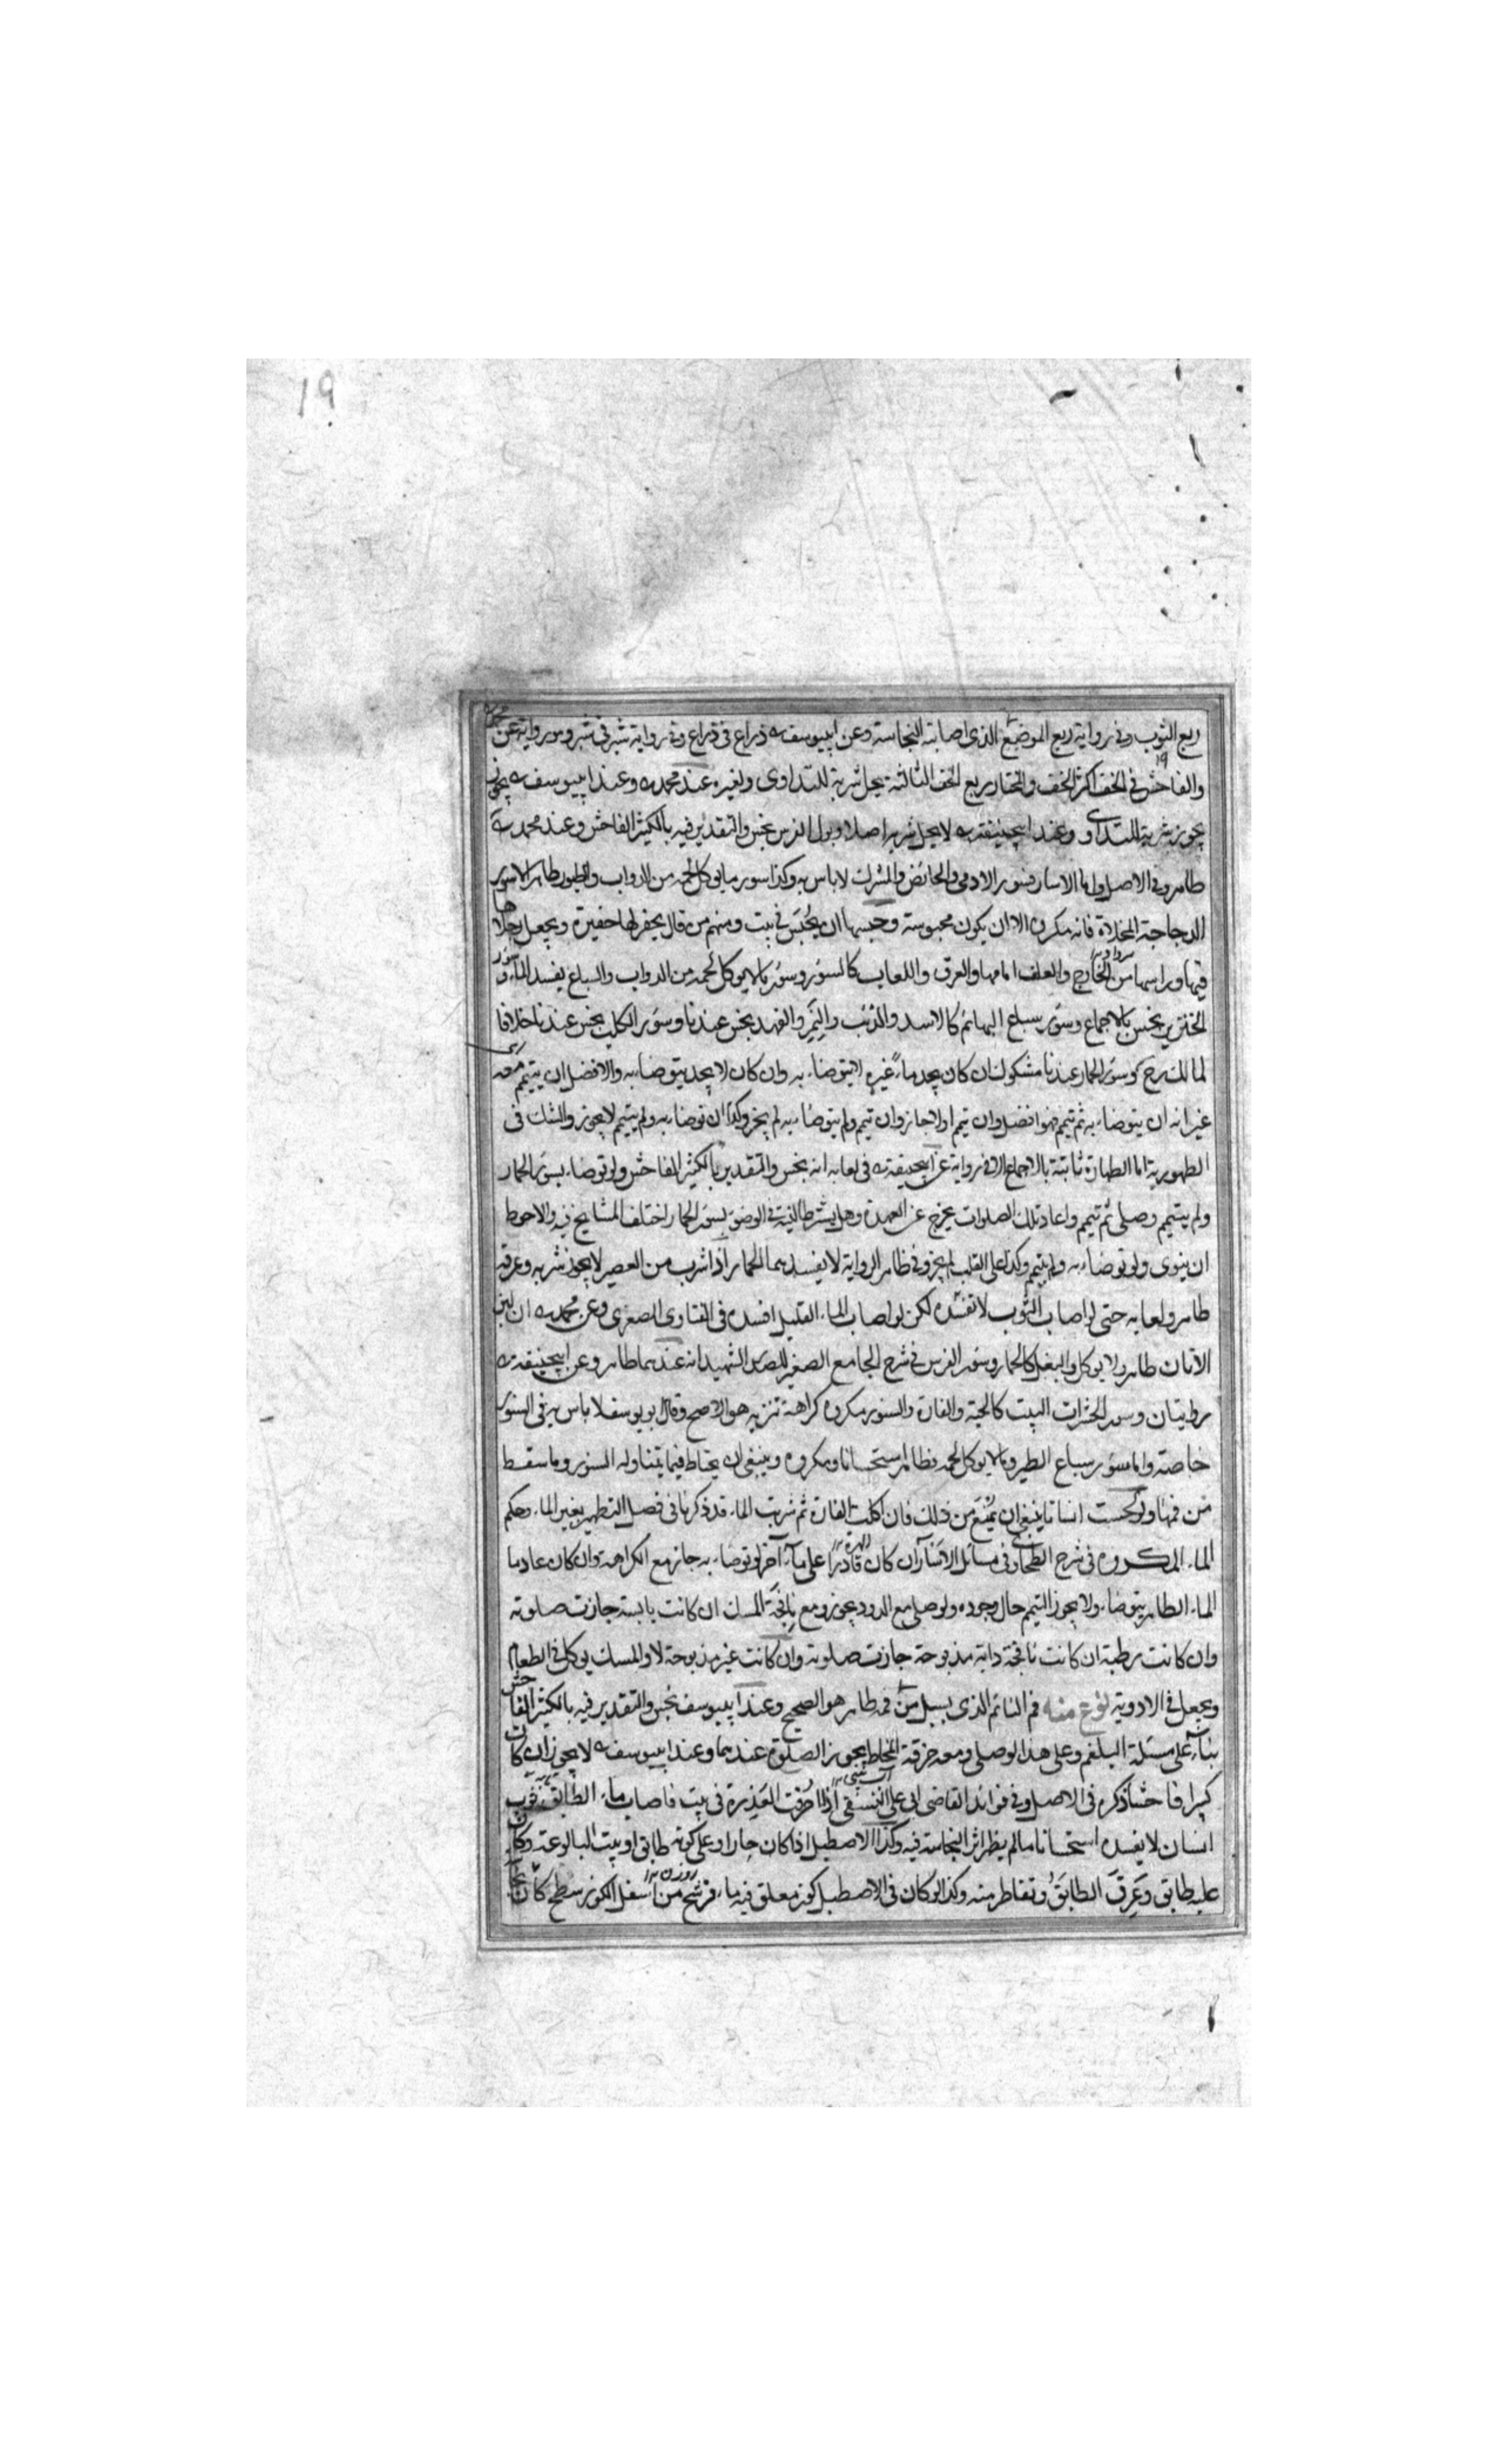 19
ربع الثوب وفي رواية ربع الموضع الذي اصابته النجاسة وعن ابيوسف ره ذراع في ذراع وفي رواية شبر في شبر وهو رواية عن محمد ره
والفاحش في الخف اكثر الخف والمختار ربع الخف الثالثة يحل شربه للتداوي ولغيره عند محمد ره وعند ابيوسف ره يجوز
يجوز شربه للتداوي وعند ابيحنيفة ره لا يحل شربه اصلا وبول الفرس نجس والتقدير فيه بالكثير الفاحش وعند محمد ره
طاهر وفي الاصل واما الاسار فسور الادمي والحائض والمشرك لا باس به وكذا سور ما يوكل لحمه من الدواب والطيور طاهر الا سور
الدجاجة المخلاة فانه مكروه الا ان يكون محبوسة وحبسها ان يُحْبَس في بيت ومنهم من قال يحفر لها حفيرة ويجعل رجلاها
فيها وراسها من الخارج والعلف امامها والعرق واللعاب كالسؤر وسؤر ما لا يوكل لحمه من الدواب والسباع يفسد الماء وسؤر
الخنزير نجس بالاجماع وسؤر سباع البهائم كالاسد والذئب والنمر والفهد نجس عندنا وسؤر الكلب نجس عندنا خلافا
لمالك رح وسؤر الحمار عندنا مشكوك ان كان يجد ماءً غيره لا يتوضاء به وان كان لا يجد يتوضاء به والافضل ان يتيمم معه
غير انه ان يتوضاء به ثم تيمم فهو افضل وان تيمم اولا جاز وان تيمم ولم يتوضاء به لم يجز وكذا ان توضاء به ولم يتيمم لا يجوز والشك في
الطهورية اما الطهارة ثابتة بالاجماع الا في رواية عن ابيحنيفة ره في لعابه انه نجس والتقدير بالكثير الفاحش ولو توضاء بسؤر الحمار
ولم يتيمم وصلى ثم تيمم واعاد تلك الصلوات يخرج عن العهدة وهل يشترط النية في الوضوء بسؤر الحمار اختلف المشايخ فيه والاحوط
ان ينوى ولو توضاء به ولم يتيمم وكذا على القلب لم يجز وفي ظاهر الرواية لا يفسدهما الحمار اذا شرب من العصير لا يجوز شربه وعرقه
طاهر ولعابه حتى لو اصاب الثوب لا تفسده لكن لو اصاب الماء القليل افسده في الفتاوى الصغرى وعن محمد ره ان لبن
الاتان طاهر ولا يوكل والبغل كالحمار وسؤر الفرس في شرح الجامع الصغير للصدر الشهيد انه عندهما طاهر وعن ابيحنيفة ره
روايتان وسور الحشرات البيت كالحية والفارة والسنور مكروه كراهة تنزيه هو الاصح وقال ابو يوسف لا باس به في السنور
خاصة واما سؤر سباع الطير وما لا يوكل لحمه فطاهر استحسانا ومكروه وينبغي ان يحتاط فيما يتناوله السنور وما سقط
من فمها ولو لحست انسانا ينبغي ان يُمْنَع من ذلك فان اكلت الفارة ثم شربت الماء قد ذكرنا في فصل التطهير بغير الماء وحكم
الماء المكروه في شرح الطحاوي في مسائل الاسئار ان كان قادرا على ماء آخر لو توضاء به جاز مع الكراهة وان كان عادما
الماء الطاهر يتوضاء ولا يجوز التيمم حال وجوده ولو صلى مع الدود يجوز ومع نافجة المسك ان كانت يابسة جازت صلوته
وان كانت رطبة ان كانت نافجة دابة مذبوحة جازت صلوته وان كانت غير مذبوحة لا والمسك يوكل في الطعام
ويجعل في الادوية نوع منه فم النائم الذي يسيل من فمه طاهر هو الصحيح وعند ابيوسف نجس والتقدير فيه بالكثير الفاحش
بناء على مسئلة البلغم وعلى هذا لو صلى ومعه خرقة المخاط يجوز الصلوة عندهما وعند ابيوسف ره لا يجوز ان كان
كثيرا فاحشا ذكره في الاصل وفي فوائد القاضي ابي علي النسفي اذا احرقت العَذِرة في بيت فاصاب ماء الطابق ثوب
انسان لا يفسده استحسانا ما لم يظهر اثر النجاسة فيه وكذا الاصطبل اذا كان حارا وعلى كوته طابق او بيت البالوعة وكان
عليه طابق وعَرِقَ الطابَقُ وتقاطر منه وكذا لو كان في الاصطبل كوز معلق فيه ماء فرشح من اسفل الكوز سطح كان